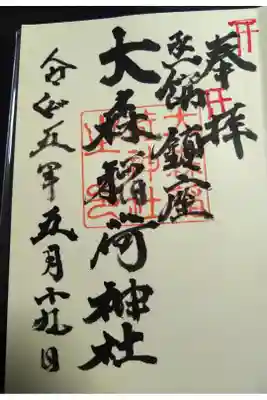 奉拝
鎮座
大森稲荷神社
令和五年五月十九日